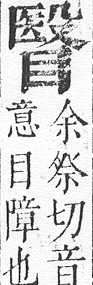 瞖
余祭切音
意目障也